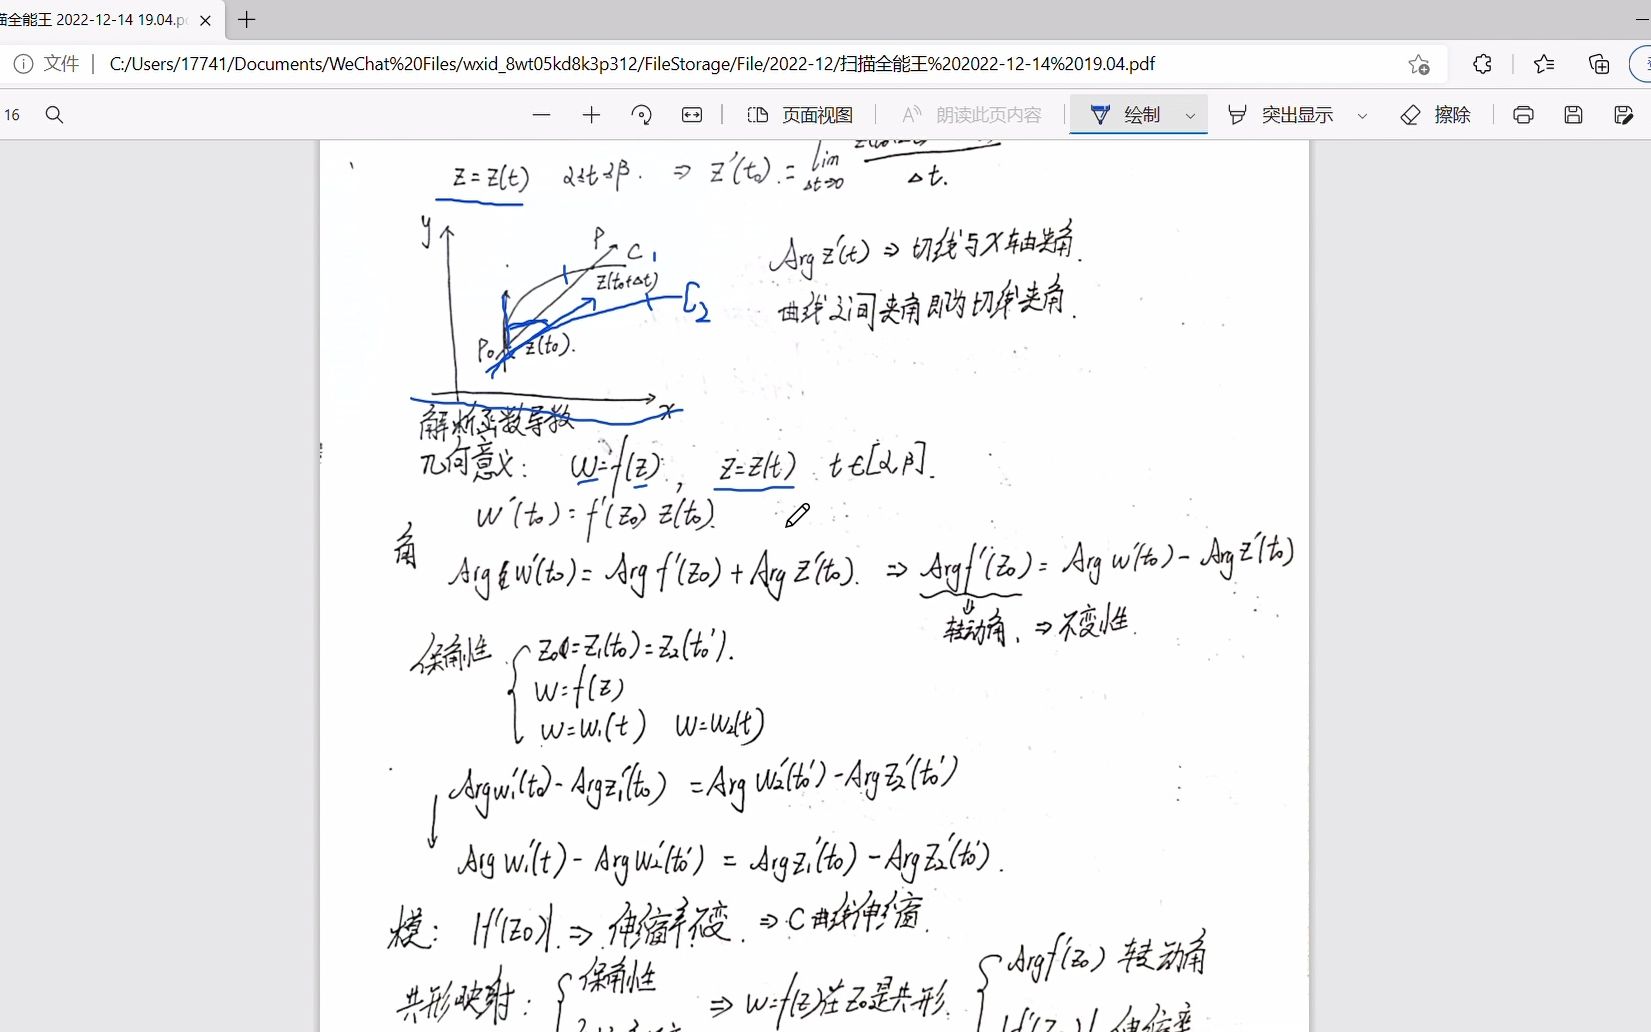 描全能王 2022-12-14 19.04.p
文件 C:/Users/17741/Documents/WeChat%20Files/wxid_8wt05kd8k3p312/FileStorage/File/2022-12/扫描全能王%202022-12-14%2019.04.pdf
16 页面视图 朗读此页内容 绘制 突出显示 擦除
z=z(t) α≤t≤β. ⇒ z'(t₀).= lim Δt→0 Δt.
y P C
z(t₀+Δt)
C₂
P₀ z(t₀).
x
Arg z'(t) ⇒ 切线与x轴夹角.
曲线之间夹角即为切线夹角.
解析函数导数
几何意义: w=f(z), z=z(t) t∈[α,β].
w'(t₀)=f'(z₀) z(t₀).
角
Arg w'(t₀)= Arg f'(z₀)+Arg z'(t₀). ⇒ Arg f'(z₀)= Arg w'(t₀)-Arg z'(t₀)
⇓
转动角. ⇒不变性.
保角性 { z₀=z₁(t₀)=z₂(t₀').
w=f(z)
w=w₁(t) w=w₂(t)
Arg w₁'(t₀)-Arg z₁'(t₀) =Arg w₂'(t₀')-Arg z₂'(t₀')
↓
Arg w₁'(t)-Arg w₂'(t₀') = Arg z₁'(t₀)-Arg z₂'(t₀').
模: |f'(z₀)| ⇒ 伸缩率不变. ⇒ C曲线伸缩.
共形映射: { 保角性 ⇒ w=f(z)在z₀是共形. { Arg f'(z₀) 转动角